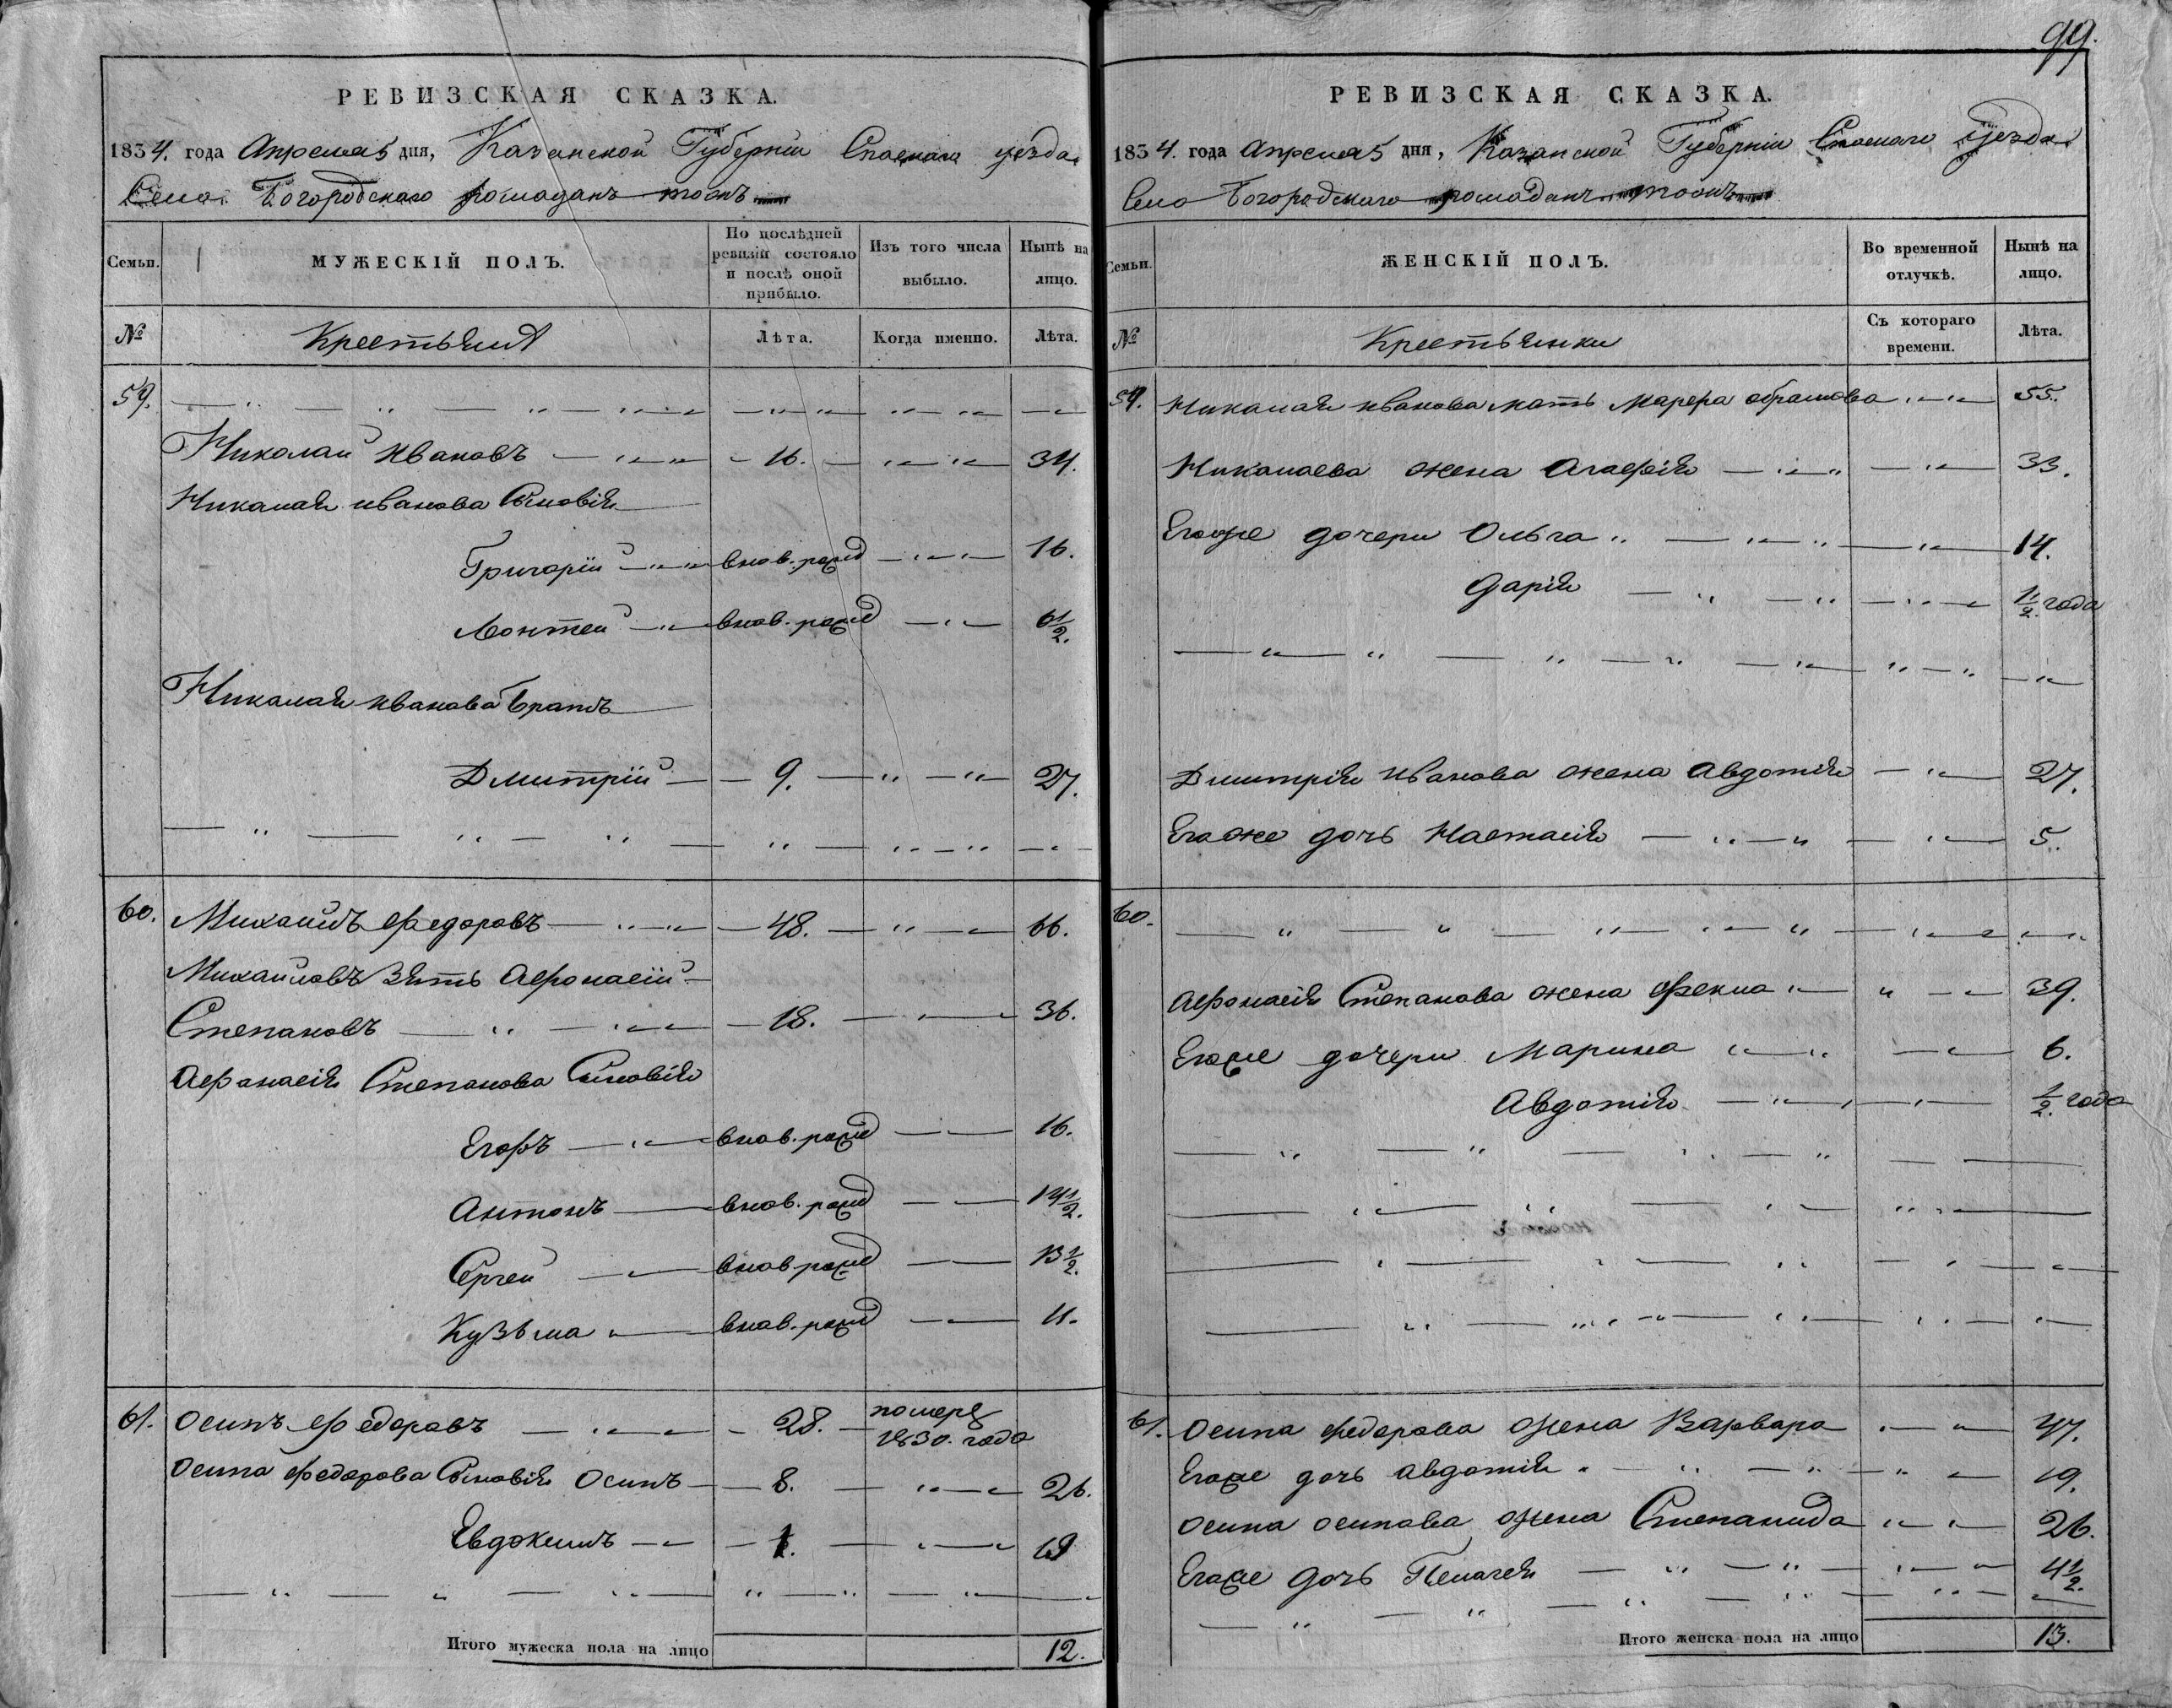 РЕВИЗСКАЯ СКАЗКА.
1834. года Апреля 5 дня, Казанской Губернии Спаскаго уезда
Села Богородскаго Ромадан тожъ
Семьи.
МУЖЕСКІЙ ПОЛЪ.
По послѣдней ревизіи состояло и послѣ оной прибыло.
Изъ того числа выбыло.
Нынѣ на лицо.
№
Крестьяня
Лѣта.
Когда именно.
Лѣта.
59.
Николай Ивановъ 16. 34.
Николая иванова Сыновія
Григорій внов. рожд 16.
Леонтей внов. рожд 6 1/2.
Николая иванова братъ
Дмитрій 9. 27.
60. Михаилъ Федоровъ 48. 66.
Михайловъ Зять Афонасій
Степановъ 18. 36.
Афанасія Степанова Сыновія
Егоръ внов. рожд 16.
Антонъ внов. рожд 14 1/2.
Сергей внов. рожд 13 1/2.
Кузьма внов. рожд 11.
61. Осипъ Федоровъ 28. померъ 1830. года
Осипа Федорова Сыновія Осипъ 8. 26.
Евдокимъ 1. 19
Итого мужеска пола на лицо 12.
99.
РЕВИЗСКАЯ СКАЗКА.
1834. года Апреля 5 дня, Казанской Губерніи Спаскаго уезда
Село Богородскаго Ромаданъ тожъ
Семьи.
ЖЕНСКІЙ ПОЛЪ.
Во временной отлучкѣ.
Нынѣ на лицо.
№
Крестьянки
Съ котораго времени.
Лѣта.
59. Николая иванова мать Марфа абрамова 55.
Николаева жена Агафія 33.
Егоже дочери Ольга 14.
Дарія 1/2. года
Дмитрія Иванова жена Авдотия 27.
Егоже дочь Настасія 5.
60.
Афонасія Степанова жена Фекла 39.
Егоже дочери Марина 6.
Авдотия 1/2. года
61. Осипа Федорова жена Варвара 47.
Егоже дочь Авдотия 19.
Осипа осипова жена Степанида 26.
Егоже дочь Пелагея 4 1/2.
Итого женска пола на лицо 13.